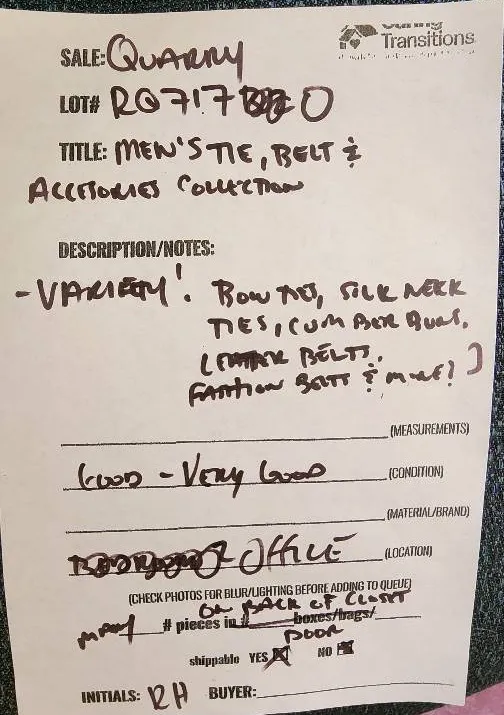 Caring
Transitions
SALE: QUARRY
LOT# RQ717 0
TITLE: MEN'S TIE, BELT &
ACCESSORIES COLLECTION
DESCRIPTION/NOTES:
- VARIETY! BOW TIES, SILK NECK
TIES, CUMBERBUNS,
LEATHER BELTS,
FASHION BELTS & MORE!
(MEASUREMENTS)
GOOD - VERY GOOD (CONDITION)
(MATERIAL/BRAND)
OFFICE (LOCATION)
(CHECK PHOTOS FOR BLUR/LIGHTING BEFORE ADDING TO QUEUE)
ON BACK OF CLOSET
MANY # pieces in # boxes/bags/
DOOR
shippable YES NO
INITIALS: RH BUYER: